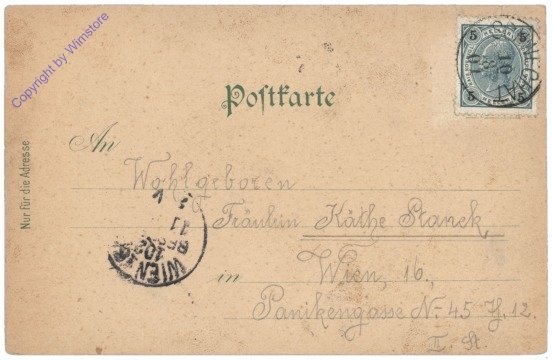 Copyright by Wimstore
5 5
5 5
10
Postkarte
Nur für die Adresse
An
Wohlgeboren
Fräulein Käthe Stanek
in Wien, 16,
Panikengasse No 45 T. 12.
II. St.
WIEN
11